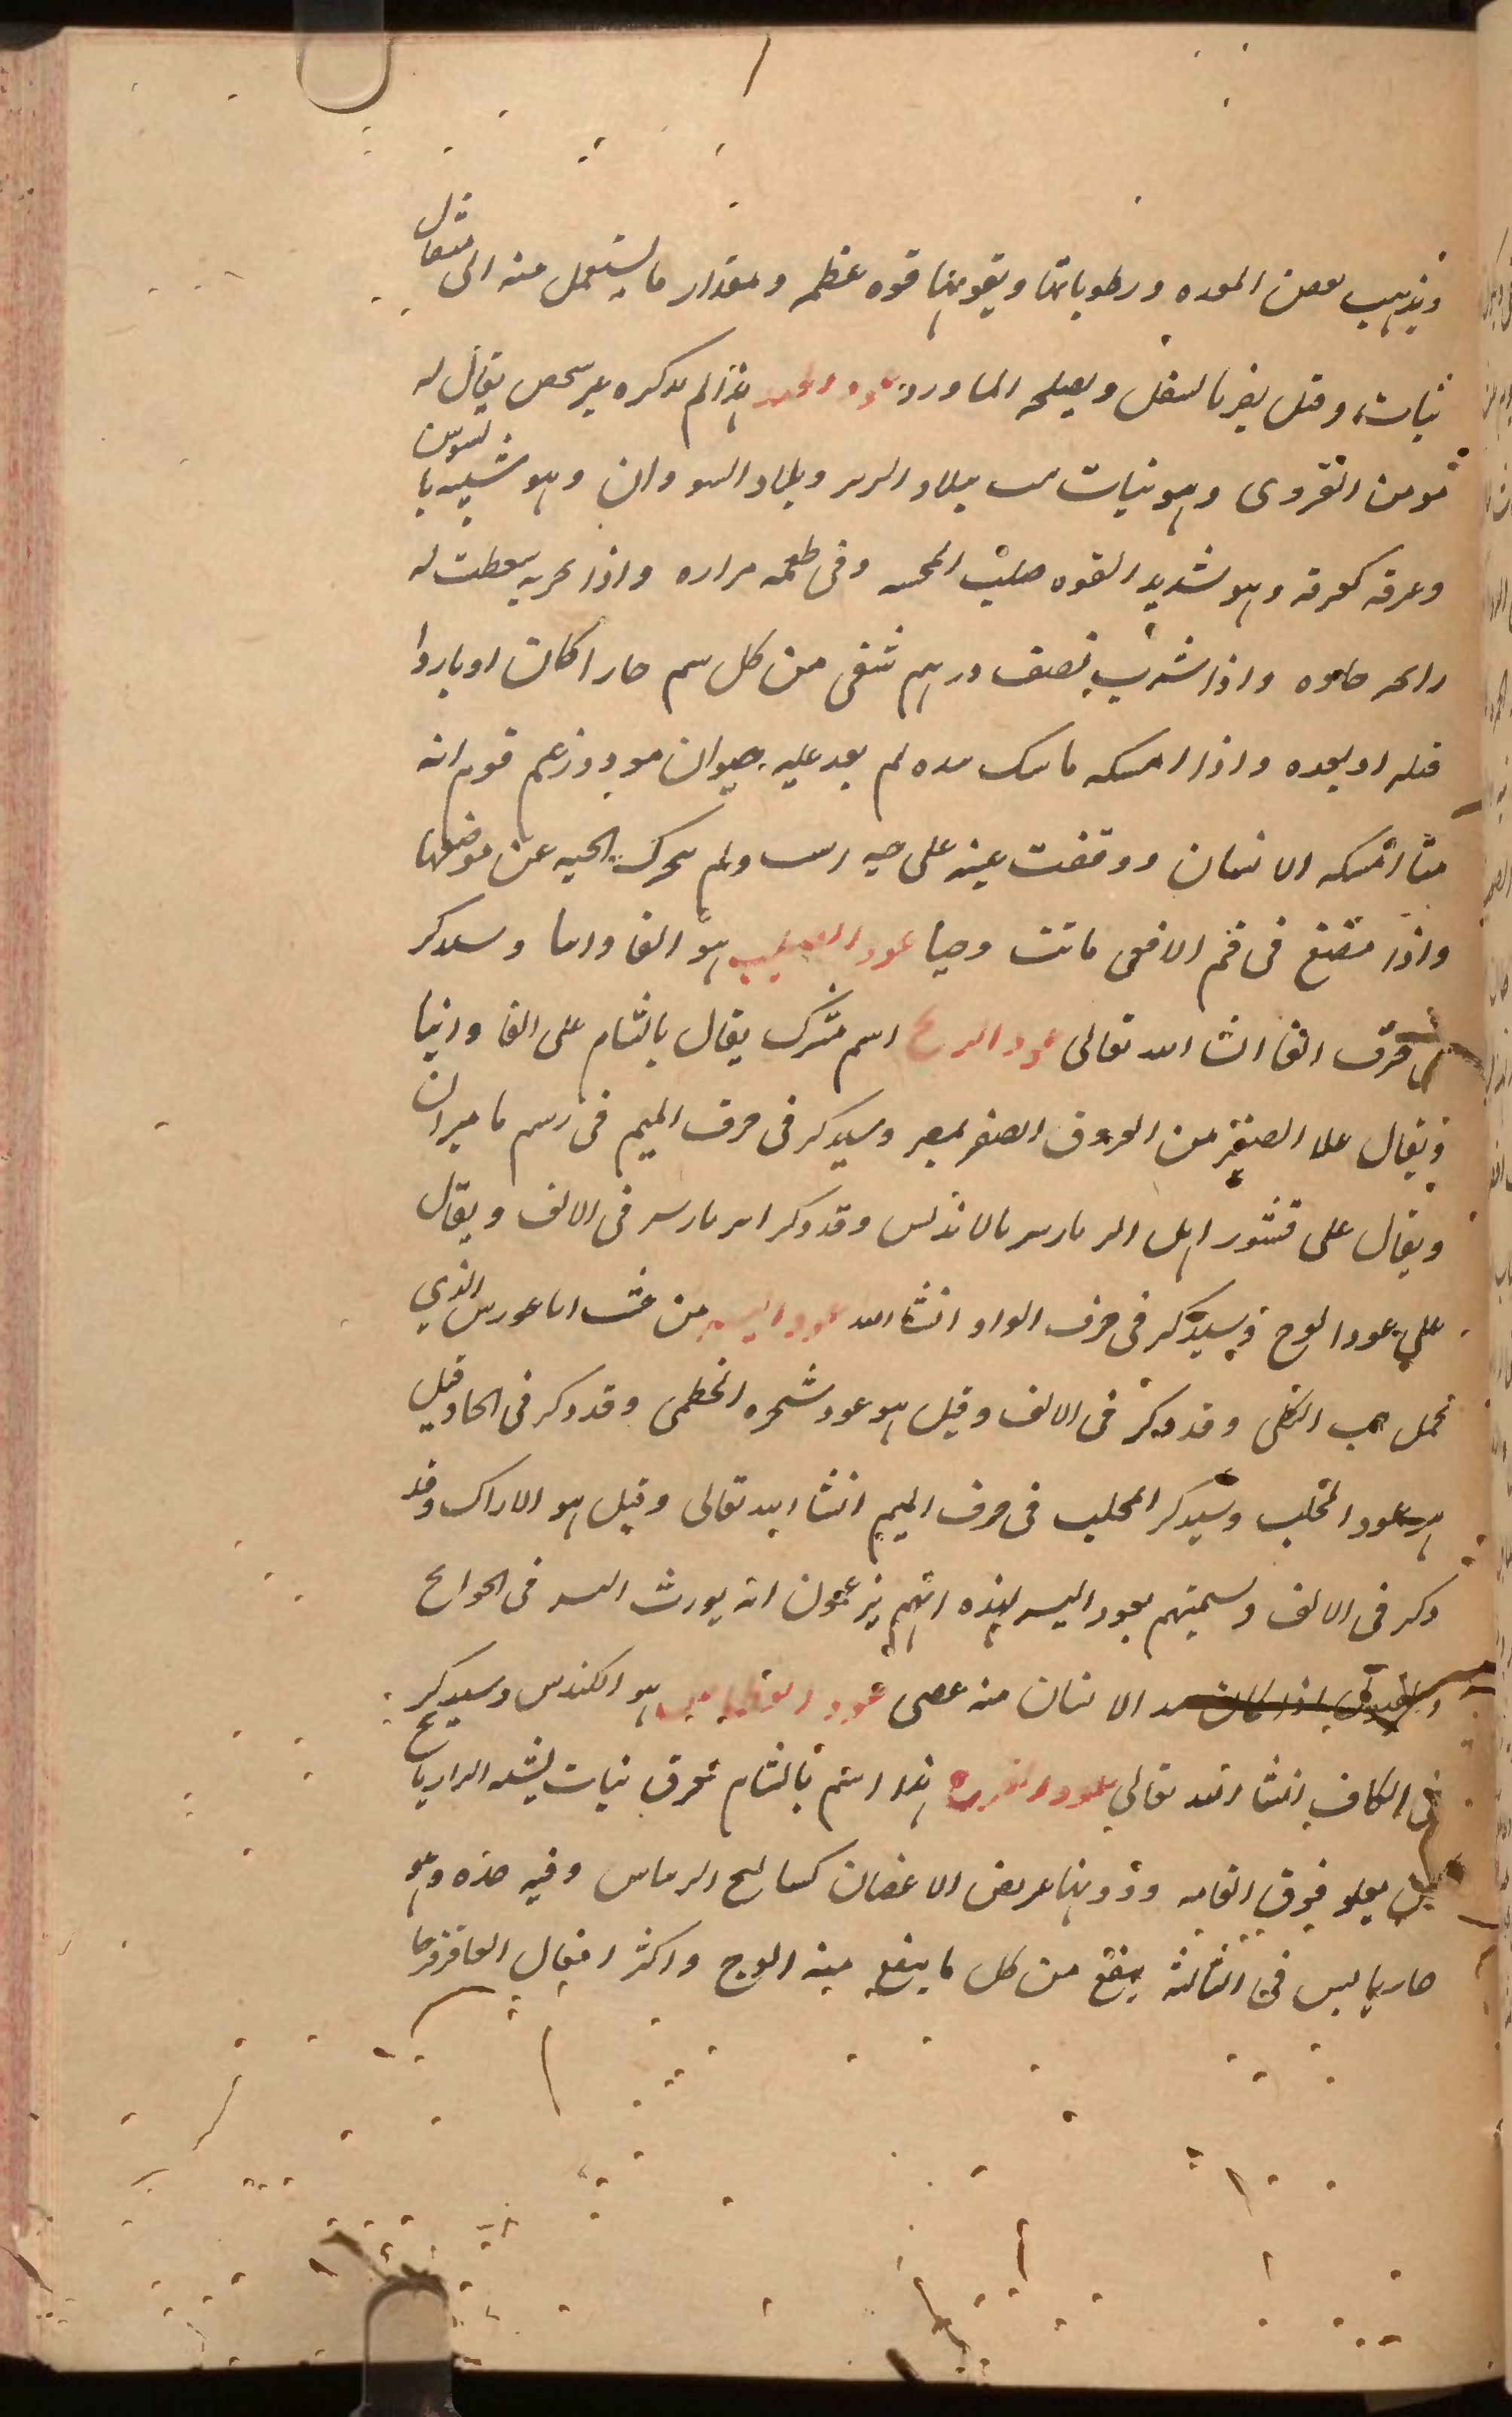 ويذهب بعفن المعده ورطوباتها ويقويها قوه عظمه ومقدار ما يستعمل منه الى مثقال
وقيل يضر بالسفل ويصلحه الماورد عود الحيه هذا لم يذكره غير شخص يقال له
القروى وهو نبات ببلاد البربر وبلاد السودان وهو شبيه بالسوس
وعرقه كعرقه وهو شديد القوه صلب المجسه وفى طعمه مراره واذا بخر به سطعت له
رائحه واذا شرب نصف درهم شفى من كل سم حارا كان او باردا
قبله او بعده واذا امسكه ماسك بيده لم يعد عليه حيوان موذ وزعم قوم انه
متا امسكه الانسان ووقفت عينه على حيه ولم تتحرك الحيه عن موضعها
واذا مضغ فى فم الافعى ماتت عود الصليب هو الفاوانيا وسيذكر
فى حرف الفا انشا الله تعالى عود الريح اسم مشترك يقال بالشام على الفاوانيا
ويقال على الصغير من العروق الصفر بمصر وسيذكر فى حرف الميم فى رسم ماميران
ويقال على قشور اصل البرباريس بالاندلس وقد ذكر امبرباريس فى الالف ويقال
على عود الوج وسيذكر فى حرف الواو انشا الله عود اليسر من خشب اناغورس الذي
يحمل حب الكلى وقد ذكر فى الالف وقيل هو عود شجره الخطمى وقد ذكر فى الخا وقيل
هو عود المحلب وسيذكر المحلب فى حرف الميم انشا الله تعالى وقيل هو الاراك وقد
ذكر فى الالف وتسميتهم بعود اليسر لهذه انهم يزعمون انه يورث اليسر فى الحوائج
الانسان منه عصى عود العطاس هو الكندس وسيذكر
فى الكاف انشا الله تعالى عود القرح هذا اسم بالشام لعرق نبات يشبه الرازيانج
يعلو فوق القامه ودونها عريض الاغصان وفيه حده وهو
حار يابس فى الثالثه ينفع من كل ما ينفع منه الوج واكثر افعال العاقرقرحا